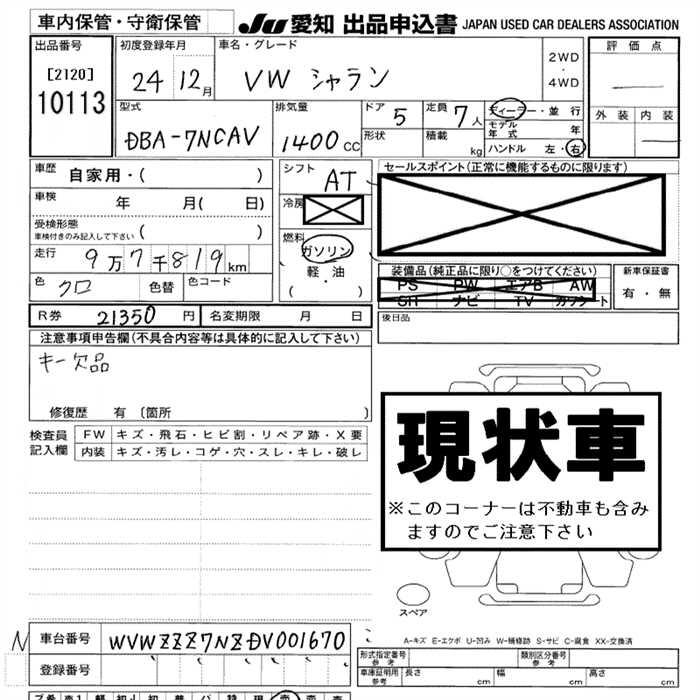 車内保管・守衛保管
JU 愛知 出品申込書 JAPAN USED CAR DEALERS ASSOCIATION
出品番号
[2120]
10113
初度登録年月
24 12月
車名・グレード
VW シャラン
2WD
・
4WD
評価点
外装 内装
型式
DBA-7NCAV
排気量
1400 CC
ドア 5
形状
定員 7人
積載 kg
ディーラー・並行
モデル年式 年
ハンドル 左・右
車歴 自家用・( )
車検 年 月( 日)
受検形態
車検付きのみ記入して下さい ( )
走行 9万7千819km
色 クロ 色替 色コード
シフト AT
冷房
燃料
ガソリン
軽・油
( ・ )
セールスポイント(正常に機能するものに限ります)
装備品(純正品に限り○をつけてください)
PS PW エアB AW
SH ナビ TV カワシート
新車保証書
有・無
後日品
R券 21350 円 名変期限 月 日
注意事項申告欄(不具合内容等は具体的に記入して下さい)
キー欠品
修復歴 有 〔箇所 〕
検査員
記入欄
FW キズ・飛石・ヒビ割・リペア跡・X要
内装 キズ・汚レ・コゲ・穴・スレ・キレ・破レ
現状車
※このコーナーは不動車も含み
ますのでご注意下さい
スペア
A-キズ E-エクボ U-凹み W-補修跡 S-サビ C-腐食 XX-交換済
N
車台番号 WVWZZZ7NZDV001670
登録番号
形式指定番号
参考
類別区分番号
参考
車庫証明用
参考
長さ cm 幅 cm 高さ cm